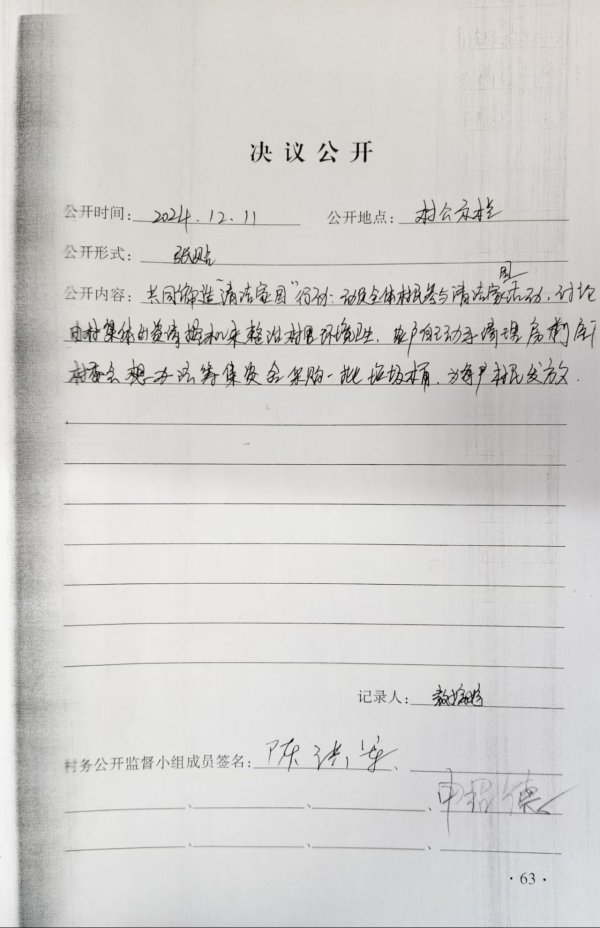 决议公开
公开时间：2024.12.11 公开地点：村公示栏
公开形式：张贴
公开内容：共同缔造"清洁家园"行动：动员全体村民参与清洁家园活动，讨论
由村集体出资请挖机来整治村里环境卫生，农户自己动手清理房前屋
村委会想办法筹集资金采购一批垃圾桶，为每户村民发放.
记录人：
村务公开监督小组成员签名：陈洪军、
申绍德
、 、 、
、 、 、
·63·